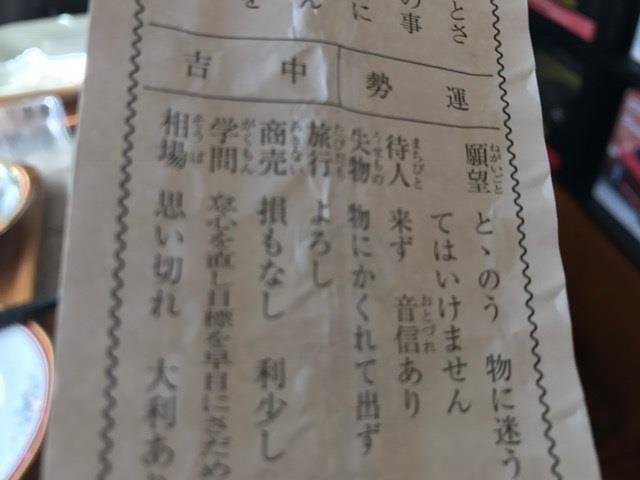 とさ
の事
に
ん
を
運勢
中吉
ねがいごと
願望 とゝのう 物に迷う
てはいけません
まちびと おとづれ
待人 来ず 音信あり
うせもの
失物 物にかくれて出ず
旅行 よろし
あきない
商売 損もなし 利少し
がくもん
学問 心を直し目標を早目にさだめ
そうば
相場 思い切れ 大利あ